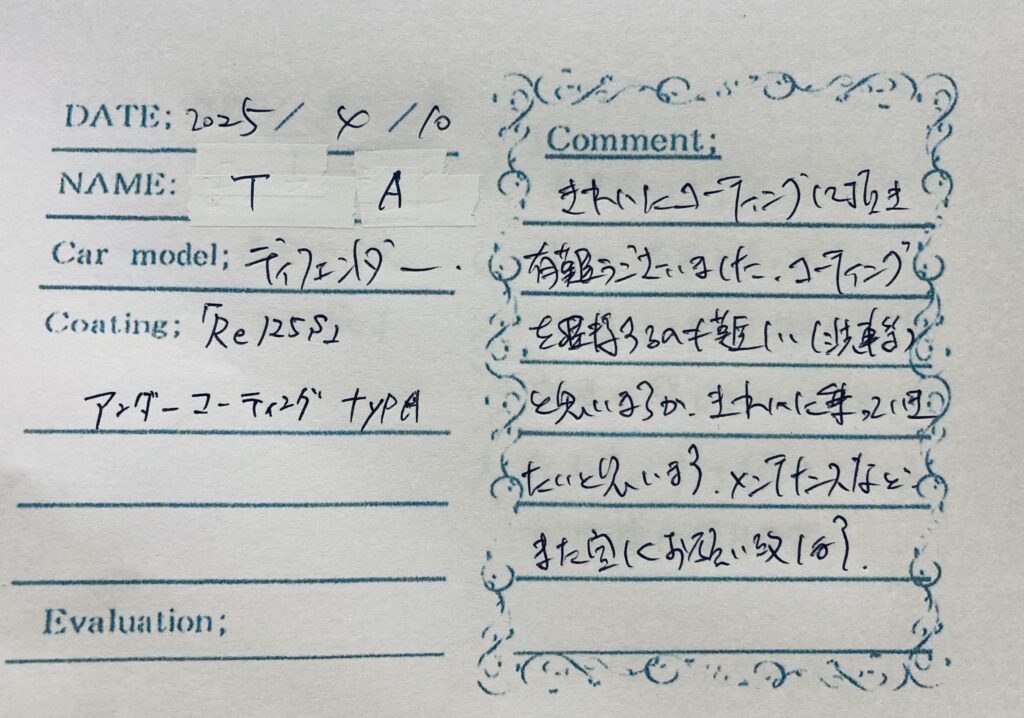 DATE; 2025/ 4 /10
NAME: T A
Car model; ディフェンダー.
Coating; 「Re」25S2
アンダーコーティング typeA
Evaluation;
Comment;
きれいにコーティングして頂き
有難うございました、コーティング
を維持するのも難しい(洗車等)
と思いますが、きれいに乗っていき
たいと思います、メンテナンスなど、
また宜しくお願い致します.